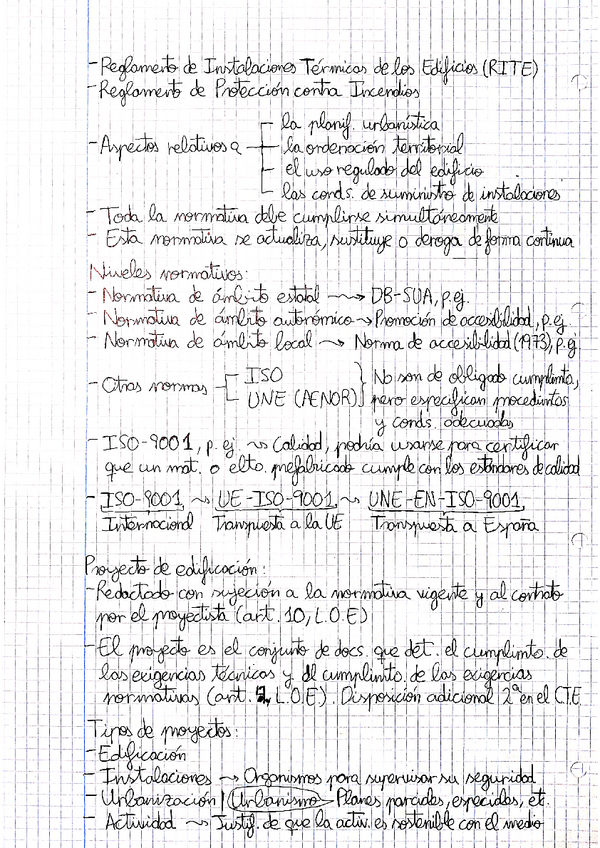 - Reglamento de Instalaciones Térmicas de los Edificios (RITE)
- Reglamento de Protección contra Incendios
- Aspectos relativos a
la planif. urbanística
la ordenación territorial
el uso regulado del edificio
las conds. de suministro de instalaciones
- Toda la normativa debe cumplirse simultáneamente
- Esta normativa se actualiza, sustituye o deroga de forma continua
Niveles normativos:
- Normativa de ámbito estatal → DB-SUA, p.ej.
- Normativa de ámbito autonómico → Promoción de accesibilidad, p.ej
- Normativa de ámbito local → Norma de accesibilidad (1973), p.ej
- Otras normas
ISO
UNE (AENOR)
No son de obligado cumplimto,
pero especifican procedimtos
y conds. adecuadas
- ISO-9001, p. ej. → Calidad, podría usarse para certificar
que un mat. o elto. prefabricado cumple con los estándares de calidad
- ISO-9001 → UE-ISO-9001 → UNE-EN-ISO-9001
Internacional Transpuesta a la UE Transpuesta a España
Proyecto de edificación:
- Redactado con sujeción a la normativa vigente y al contrato
por el proyectista (art. 10, L.O.E)
- El proyecto es el conjunto de docs. que det. el cumplimto. de
las exigencias técnicas y el cumplimto. de las exigencias
normativas (art. 2, L.O.E). Disposición adicional 2ª en el CTE.
Tipos de proyectos:
- Edificación
- Instalaciones → Organismos para supervisar su seguridad
- Urbanización / Urbanismo → Planes parciales, especiales, etc.
- Actividad → Justif. de que la activ. es sostenible con el medio